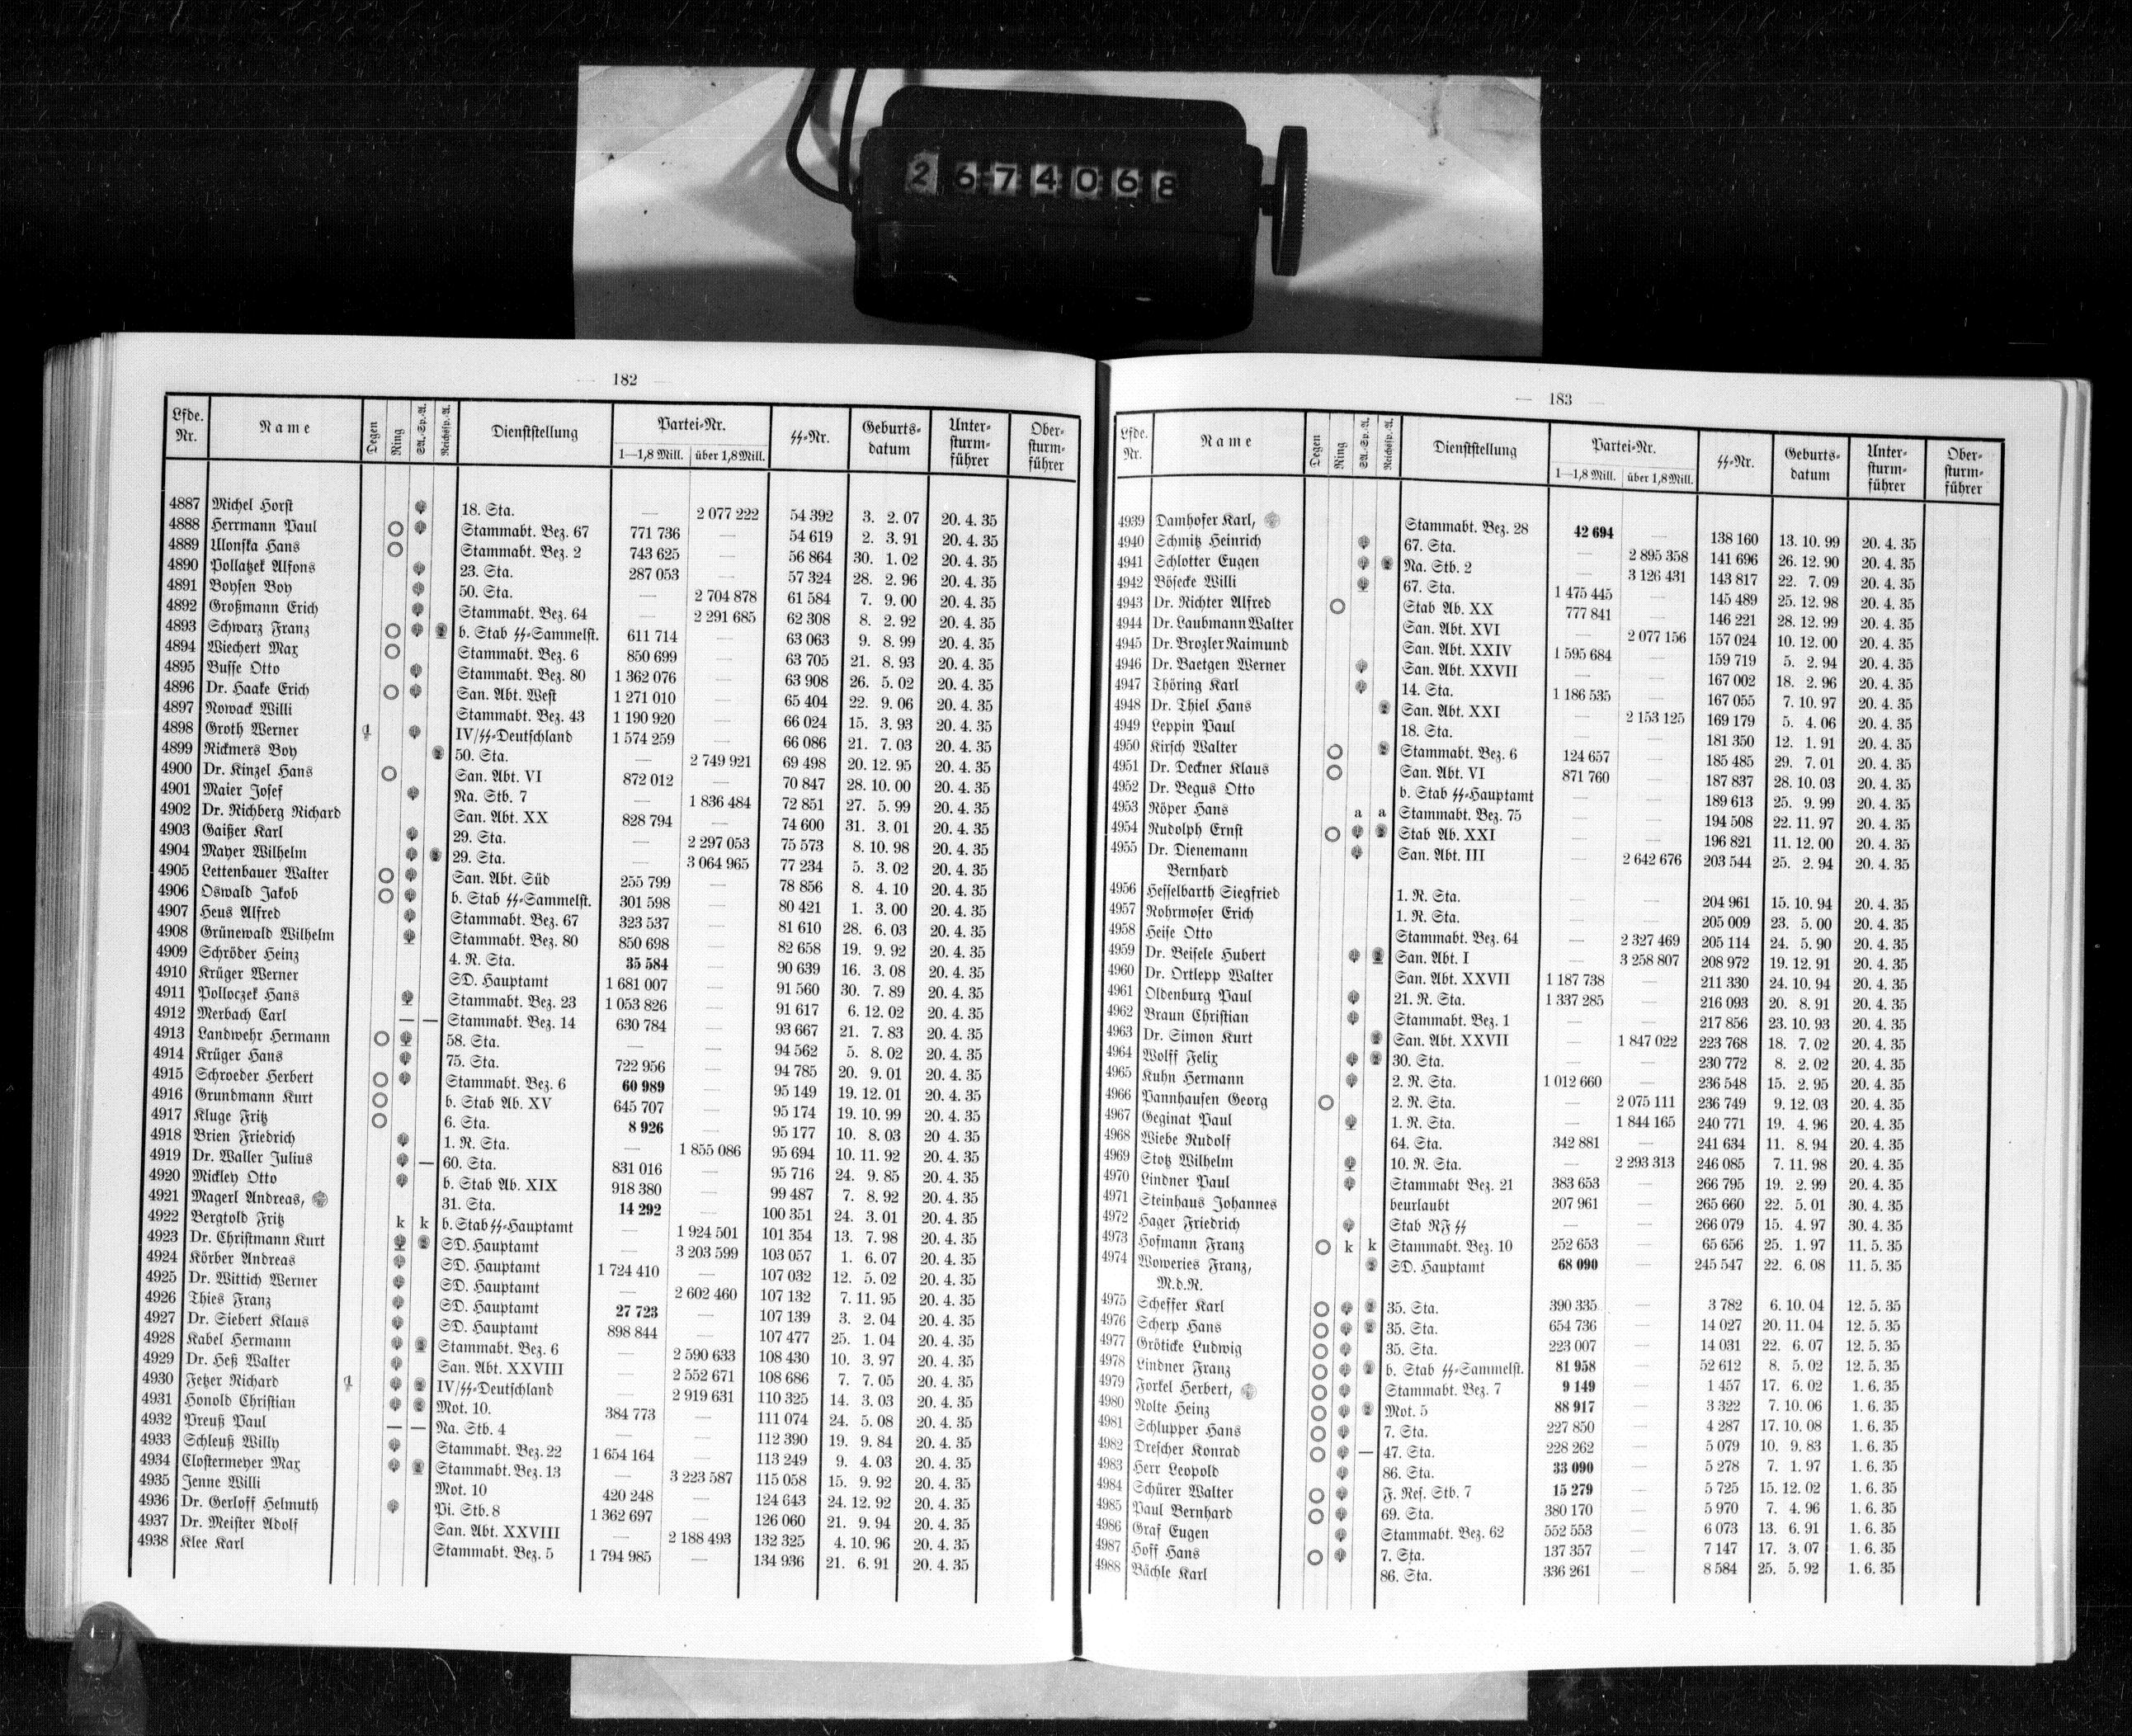 2674068
— 182 —
Lfde. Nr. Name Degen Ring SA.-Sp.-A. Reichssp.-A. Dienststellung Partei-Nr. 1—1,8 Mill. über 1,8 Mill. SS-Nr. Geburts-datum Unter-sturm-führer Ober-sturm-führer
4887 Michel Horst 18. Sta. — 2 077 222 54 392 3. 2. 07 20. 4. 35
4888 Herrmann Paul Stammabt. Bez. 67 771 736 — 54 619 2. 3. 91 20. 4. 35
4889 Ulonska Hans Stammabt. Bez. 2 743 625 — 56 864 30. 1. 02 20. 4. 35
4890 Pollatzek Alfons 23. Sta. 287 053 — 57 324 28. 2. 96 20. 4. 35
4891 Boysen Boy 50. Sta. — 2 704 878 61 584 7. 9. 00 20. 4. 35
4892 Großmann Erich Stammabt. Bez. 64 — 2 291 685 62 308 8. 2. 92 20. 4. 35
4893 Schwarz Franz b. Stab SS-Sammelst. 611 714 — 63 063 9. 8. 99 20. 4. 35
4894 Wiechert Max Stammabt. Bez. 6 850 699 — 63 705 21. 8. 93 20. 4. 35
4895 Busse Otto Stammabt. Bez. 80 1 362 076 — 63 908 26. 5. 02 20. 4. 35
4896 Dr. Haake Erich San. Abt. West 1 271 010 — 65 404 22. 9. 06 20. 4. 35
4897 Nowack Willi Stammabt. Bez. 43 1 190 920 — 66 024 15. 3. 93 20. 4. 35
4898 Groth Werner IV/SS-Deutschland 1 574 259 — 66 086 21. 7. 03 20. 4. 35
4899 Rickmers Boy 50. Sta. — 2 749 921 69 498 20. 12. 95 20. 4. 35
4900 Dr. Kinzel Hans San. Abt. VI 872 012 — 70 847 28. 10. 00 20. 4. 35
4901 Maier Josef Na. Stb. 7 — 1 836 484 72 851 27. 5. 99 20. 4. 35
4902 Dr. Richberg Richard San. Abt. XX 828 794 — 74 600 31. 3. 01 20. 4. 35
4903 Gaißer Karl 29. Sta. — 2 297 053 75 573 8. 10. 98 20. 4. 35
4904 Mayer Wilhelm 29. Sta. — 3 064 965 77 234 5. 3. 02 20. 4. 35
4905 Lettenbauer Walter San. Abt. Süd 255 799 — 78 856 8. 4. 10 20. 4. 35
4906 Oswald Jakob b. Stab SS-Sammelst. 301 598 — 80 421 1. 3. 00 20. 4. 35
4907 Heus Alfred Stammabt. Bez. 67 323 537 — 81 610 28. 6. 03 20. 4. 35
4908 Grünewald Wilhelm Stammabt. Bez. 80 850 698 — 82 658 19. 9. 92 20. 4. 35
4909 Schröder Heinz 4. R. Sta. 35 584 — 90 639 16. 3. 08 20. 4. 35
4910 Krüger Werner SD. Hauptamt 1 681 007 — 91 560 30. 7. 89 20. 4. 35
4911 Polloczek Hans Stammabt. Bez. 23 1 053 826 — 91 617 6. 12. 02 20. 4. 35
4912 Merbach Carl — — Stammabt. Bez. 14 630 784 — 93 667 21. 7. 83 20. 4. 35
4913 Landwehr Hermann 58. Sta. — — 94 562 5. 8. 02 20. 4. 35
4914 Krüger Hans 75. Sta. 722 956 — 94 785 20. 9. 01 20. 4. 35
4915 Schroeder Herbert Stammabt. Bez. 6 60 989 — 95 149 19. 12. 01 20. 4. 35
4916 Grundmann Kurt b. Stab Ab. XV 645 707 — 95 174 19. 10. 99 20. 4. 35
4917 Kluge Fritz 6. Sta. 8 926 — 95 177 10. 8. 03 20 4. 35
4918 Brien Friedrich 1. R. Sta. — 1 855 086 95 694 10. 11. 92 20. 4. 35
4919 Dr. Waller Julius — 60. Sta. 831 016 — 95 716 24. 9. 85 20. 4. 35
4920 Mickley Otto b. Stab Ab. XIX 918 380 — 99 487 7. 8. 92 20. 4. 35
4921 Magerl Andreas, 31. Sta. 14 292 — 100 351 24. 3. 01 20. 4. 35
4922 Bergtold Fritz k k b. Stab SS-Hauptamt — 1 924 501 101 354 13. 7. 98 20. 4. 35
4923 Dr. Christmann Kurt SD. Hauptamt — 3 203 599 103 057 1. 6. 07 20. 4. 35
4924 Körber Andreas SD. Hauptamt 1 724 410 — 107 032 12. 5. 02 20. 4. 35
4925 Dr. Wittich Werner SD. Hauptamt — 2 602 460 107 132 7. 11. 95 20. 4. 35
4926 Thies Franz SD. Hauptamt 27 723 — 107 139 3. 2. 04 20. 4. 35
4927 Dr. Siebert Klaus SD. Hauptamt 898 844 — 107 477 25. 1. 04 20. 4. 35
4928 Kabel Hermann Stammabt. Bez. 6 — 2 590 633 108 430 10. 3. 97 20. 4. 35
4929 Dr. Heß Walter San. Abt. XXVIII — 2 552 671 108 686 7. 7. 05 20. 4. 35
4930 Fetzer Richard IV/SS-Deutschland — 2 919 631 110 325 14. 3. 03 20. 4. 35
4931 Honold Christian Mot. 10. 384 773 — 111 074 24. 5. 08 20. 4. 35
4932 Preuß Paul — — Na. Stb. 4 — — 112 390 19. 9. 84 20. 4. 35
4933 Schleuß Willy Stammabt. Bez. 22 1 654 164 — 113 249 9. 4. 03 20. 4. 35
4934 Clostermeyer Max Stammabt. Bez. 13 — 3 223 587 115 058 15. 9. 92 20. 4. 35
4935 Jenne Willi Mot. 10 420 248 — 124 643 24. 12. 92 20. 4. 35
4936 Dr. Gerloff Helmuth Pi. Stb. 8 1 362 697 — 126 060 21. 9. 94 20. 4. 35
4937 Dr. Meister Adolf San. Abt. XXVIII — 2 188 493 132 325 4. 10. 96 20. 4. 35
4938 Klee Karl Stammabt. Bez. 5 1 794 985 — 134 936 21. 6. 91 20. 4. 35
— 183 —
Lfde. Nr. Name Degen Ring SA.-Sp.-A. Reichssp.-A. Dienststellung Partei-Nr. 1—1,8 Mill. über 1,8 Mill. SS-Nr. Geburts-datum Unter-sturm-führer Ober-sturm-führer
4939 Damhofer Karl, Stammabt. Bez. 28 42 694 — 138 160 13. 10. 99 20. 4. 35
4940 Schmitz Heinrich 67. Sta. — 2 895 358 141 696 26. 12. 90 20. 4. 35
4941 Schlotter Eugen Na. Stb. 2 — 3 126 431 143 817 22. 7. 09 20. 4. 35
4942 Bösecke Willi 67. Sta. 1 475 445 — 145 489 25. 12. 98 20. 4. 35
4943 Dr. Richter Alfred Stab Ab. XX 777 841 — 146 221 28. 12. 99 20. 4. 35
4944 Dr. Laubmann Walter San. Abt. XVI — 2 077 156 157 024 10. 12. 00 20. 4. 35
4945 Dr. Brozler Raimund San. Abt. XXIV 1 595 684 — 159 719 5. 2. 94 20. 4. 35
4946 Dr. Baetgen Werner San. Abt. XXVII — — 167 002 18. 2. 96 20. 4. 35
4947 Thöring Karl 14. Sta. 1 186 535 — 167 055 7. 10. 97 20. 4. 35
4948 Dr. Thiel Hans San. Abt. XXI — 2 153 125 169 179 5. 4. 06 20. 4. 35
4949 Leppin Paul 18. Sta. — — 181 350 12. 1. 91 20. 4. 35
4950 Kirsch Walter Stammabt. Bez. 6 124 657 — 185 485 29. 7. 01 20. 4. 35
4951 Dr. Deckner Klaus San. Abt. VI 871 760 — 187 837 28. 10. 03 20. 4. 35
4952 Dr. Begus Otto b. Stab SS-Hauptamt — — 189 613 25. 9. 99 20. 4. 35
4953 Röper Hans a a Stammabt. Bez. 75 — — 194 508 22. 11. 97 20. 4. 35
4954 Rudolph Ernst Stab Ab. XXI — — 196 821 11. 12. 00 20. 4. 35
4955 Dr. Dienemann San. Abt. III — 2 642 676 203 544 25. 2. 94 20. 4. 35
Bernhard
4956 Hesselbarth Siegfried 1. R. Sta. — — 204 961 15. 10. 94 20. 4. 35
4957 Rohrmoser Erich 1. R. Sta. — — 205 009 23. 5. 00 20. 4. 35
4958 Heise Otto Stammabt. Bez. 64 — 2 327 469 205 114 24. 5. 90 20. 4. 35
4959 Dr. Beisele Hubert San. Abt. I — 3 258 807 208 972 19. 12. 91 20. 4. 35
4960 Dr. Ortlepp Walter San. Abt. XXVII 1 187 738 — 211 330 24. 10. 94 20. 4. 35
4961 Oldenburg Paul 21. R. Sta. 1 337 285 — 216 093 20. 8. 91 20. 4. 35
4962 Braun Christian Stammabt. Bez. 1 — — 217 856 23. 10. 93 20. 4. 35
4963 Dr. Simon Kurt San. Abt. XXVII — 1 847 022 223 768 18. 7. 02 20. 4. 35
4964 Wolff Felix 30. Sta. — — 230 772 8. 2. 02 20. 4. 35
4965 Kuhn Hermann 2. R. Sta. 1 012 660 — 236 548 15. 2. 95 20. 4. 35
4966 Pannhausen Georg 2. R. Sta. — 2 075 111 236 749 9. 12. 03 20. 4. 35
4967 Geginat Paul 1. R. Sta. — 1 844 165 240 771 19. 4. 96 20. 4. 35
4968 Wiebe Rudolf 64. Sta. 342 881 — 241 634 11. 8. 94 20. 4. 35
4969 Stotz Wilhelm 10. R. Sta. — 2 293 313 246 085 7. 11. 98 20. 4. 35
4970 Lindner Paul Stammabt Bez. 21 383 653 — 266 795 19. 2. 99 20. 4. 35
4971 Steinhaus Johannes beurlaubt 207 961 — 265 660 22. 5. 01 30. 4. 35
4972 Hager Friedrich Stab RFSS — — 266 079 15. 4. 97 30. 4. 35
4973 Hofmann Franz k k Stammabt. Bez. 10 252 653 — 65 656 25. 1. 97 11. 5. 35
4974 Woweries Franz, SD. Hauptamt 68 090 — 245 547 22. 6. 08 11. 5. 35
M.d.R.
4975 Scheffer Karl 35. Sta. 390 335 — 3 782 6. 10. 04 12. 5. 35
4976 Scherp Hans 35. Sta. 654 736 — 14 027 20. 11. 04 12. 5. 35
4977 Gröticke Ludwig 35. Sta. 223 007 — 14 031 22. 6. 07 12. 5. 35
4978 Lindner Franz b. Stab SS-Sammelst. 81 958 — 52 612 8. 5. 02 12. 5. 35
4979 Forkel Herbert, Stammabt. Bez. 7 9 149 — 1 457 17. 6. 02 1. 6. 35
4980 Nolte Heinz Mot. 5 88 917 — 3 322 7. 10. 06 1. 6. 35
4981 Schlupper Hans 7. Sta. 227 850 — 4 287 17. 10. 08 1. 6. 35
4982 Drescher Konrad — 47. Sta. 228 262 — 5 079 10. 9. 83 1. 6. 35
4983 Herr Leopold 86. Sta. 33 090 — 5 278 7. 1. 97 1. 6. 35
4984 Schürer Walter F. Res. Stb. 7 15 279 — 5 725 15. 12. 02 1. 6. 35
4985 Paul Bernhard 69. Sta. 380 170 — 5 970 7. 4. 96 1. 6. 35
4986 Graf Eugen Stammabt. Bez. 62 552 553 — 6 073 13. 6. 91 1. 6. 35
4987 Hoff Hans 7. Sta. 137 357 — 7 147 17. 3. 07 1. 6. 35
4988 Bächle Karl 86. Sta. 336 261 — 8 584 25. 5. 92 1. 6. 35